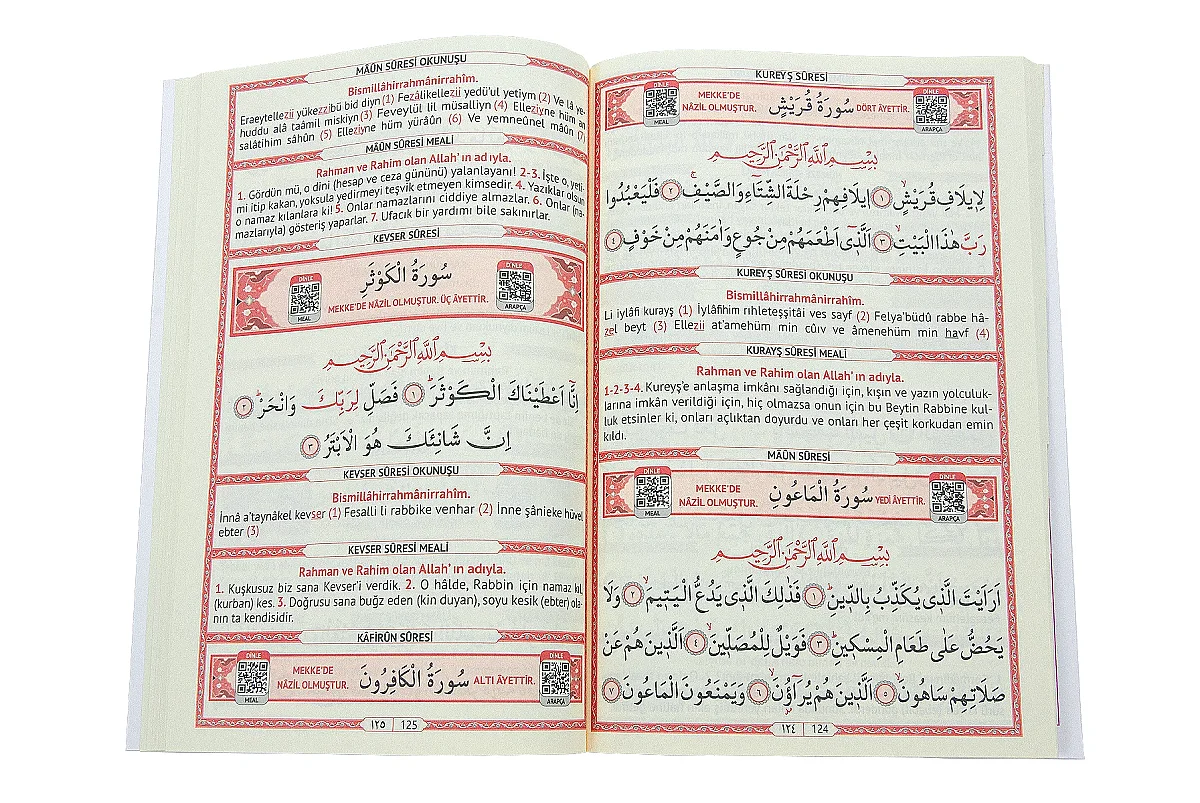 KUREYŞ SÛRESİ
DİNLE
MEAL
MEKKE'DE
NÂZİL OLMUŞTUR.
سُورَةُ قُرَيْشٍ
DÖRT ÂYETTİR.
DİNLE
ARAPÇA
بِسْمِ اللّٰهِ الرَّحْمٰنِ الرَّحِيمِ
لِا۪يلَافِ قُرَيْشٍۙ ﴿١﴾ ا۪يلَافِهِمْ رِحْلَةَ الشِّتَٓاءِ وَالصَّيْفِۚ ﴿٢﴾ فَلْيَعْبُدُوا
رَبَّ هٰذَا الْبَيْتِۙ ﴿٣﴾ اَلَّذ۪ٓي اَطْعَمَهُمْ مِنْ جُوعٍ وَاٰمَنَهُمْ مِنْ خَوْفٍ ﴿٤﴾
KUREYŞ SÛRESİ OKUNUŞU
Bismillâhirrahmânirrahîm.
Li iylâfi kurayş (1) Iylâfihim rıhleteşşitâi ves sayf (2) Felya'büdû rabbe hâ-
zel beyt (3) Ellezii at'amehüm min cûıv ve âmenehüm min havf (4)
KURAYŞ SÛRESİ MEALİ
Rahman ve Rahim olan Allah'ın adıyla.
1-2-3-4. Kureyş'e anlaşma imkânı sağlandığı için, kışın ve yazın yolculuk-
larına imkân verildiği için, hiç olmazsa onun için bu Beytin Rabbine kul-
luk etsinler ki, onları açlıktan doyurdu ve onları her çeşit korkudan emin
kıldı.
MÂÛN SÛRESİ
DİNLE
MEAL
MEKKE'DE
NÂZİL OLMUŞTUR.
سُورَةُ الْمَاعُونِ
YEDİ ÂYETTİR.
DİNLE
ARAPÇA
بِسْمِ اللّٰهِ الرَّحْمٰنِ الرَّحِيمِ
اَرَاَيْتَ الَّذ۪ي يُكَذِّبُ بِالدّ۪ينِۜ ﴿١﴾ فَذٰلِكَ الَّذ۪ي يَدُعُّ الْيَت۪يمَۙ ﴿٢﴾ وَلَا
يَحُضُّ عَلٰى طَعَامِ الْمِسْك۪ينِۜ ﴿٣﴾ فَوَيْلٌ لِلْمُصَلّ۪ينَۙ ﴿٤﴾ اَلَّذ۪ينَ هُمْ عَنْ
صَلَاتِهِمْ سَاهُونَۙ ﴿٥﴾ اَلَّذ۪ينَ هُمْ يُرَٓاؤُ۫نَۙ ﴿٦﴾ وَيَمْنَعُونَ الْمَاعُونَ ﴿٧﴾
١٢٤ 124
MÂÛN SÛRESİ OKUNUŞU
Bismillâhirrahmânirrahîm.
Eraeytellezii yükezzibü bid diyn (1) Fezâlikellezii yedü'ul yetiym (2) Ve lâ ye-
huddu alâ taâmil miskiyn (3) Feveylül lil müsalliyn (4) Elleziyne hüm an
salâtihim sâhûn (5) Elleziyne hüm yürâûn (6) Ve yemneûnel mâûn (7)
MÂÛN SÛRESİ MEALİ
Rahman ve Rahim olan Allah'ın adıyla.
1. Gördün mü, o dini (hesap ve ceza gününü) yalanlayanı! 2-3. İşte o, yeti-
mi itip kakan, yoksula yedirmeyi teşvik etmeyen kimsedir. 4. Yazıklar olsun
o namaz kılanlara ki! 5. Onlar namazlarını ciddiye almazlar. 6. Onlar (na-
mazlarıyla) gösteriş yaparlar. 7. Ufacık bir yardımı bile sakınırlar.
KEVSER SÛRESİ
DİNLE
MEAL
سُورَةُ الْكَوْثَرِ
MEKKE'DE NÂZİL OLMUŞTUR. ÜÇ ÂYETTİR.
DİNLE
ARAPÇA
بِسْمِ اللّٰهِ الرَّحْمٰنِ الرَّحِيمِ
اِنَّٓا اَعْطَيْنَاكَ الْكَوْثَرَۜ ﴿١﴾ فَصَلِّ لِرَبِّكَ وَانْحَرْۜ ﴿٢﴾
اِنَّ شَانِئَكَ هُوَ الْاَبْتَرُ ﴿٣﴾
KEVSER SÛRESİ OKUNUŞU
Bismillâhirrahmânirrahîm.
İnnâ a'taynâkel kevser (1) Fesalli li rabbike venhar (2) İnne şânieke hüvel
ebter (3)
KEVSER SÛRESİ MEALİ
Rahman ve Rahim olan Allah'ın adıyla.
1. Kuşkusuz biz sana Kevser'i verdik. 2. O hâlde, Rabbin için namaz kıl,
(kurban) kes. 3. Doğrusu sana buğz eden (kin duyan), soyu kesik (ebter) ola-
nın ta kendisidir.
KÂFİRÛN SÛRESİ
DİNLE
MEAL
MEKKE'DE
NÂZİL OLMUŞTUR.
سُورَةُ الْكَافِرُونَ
ALTI ÂYETTİR.
DİNLE
ARAPÇA
١٢٥ 125